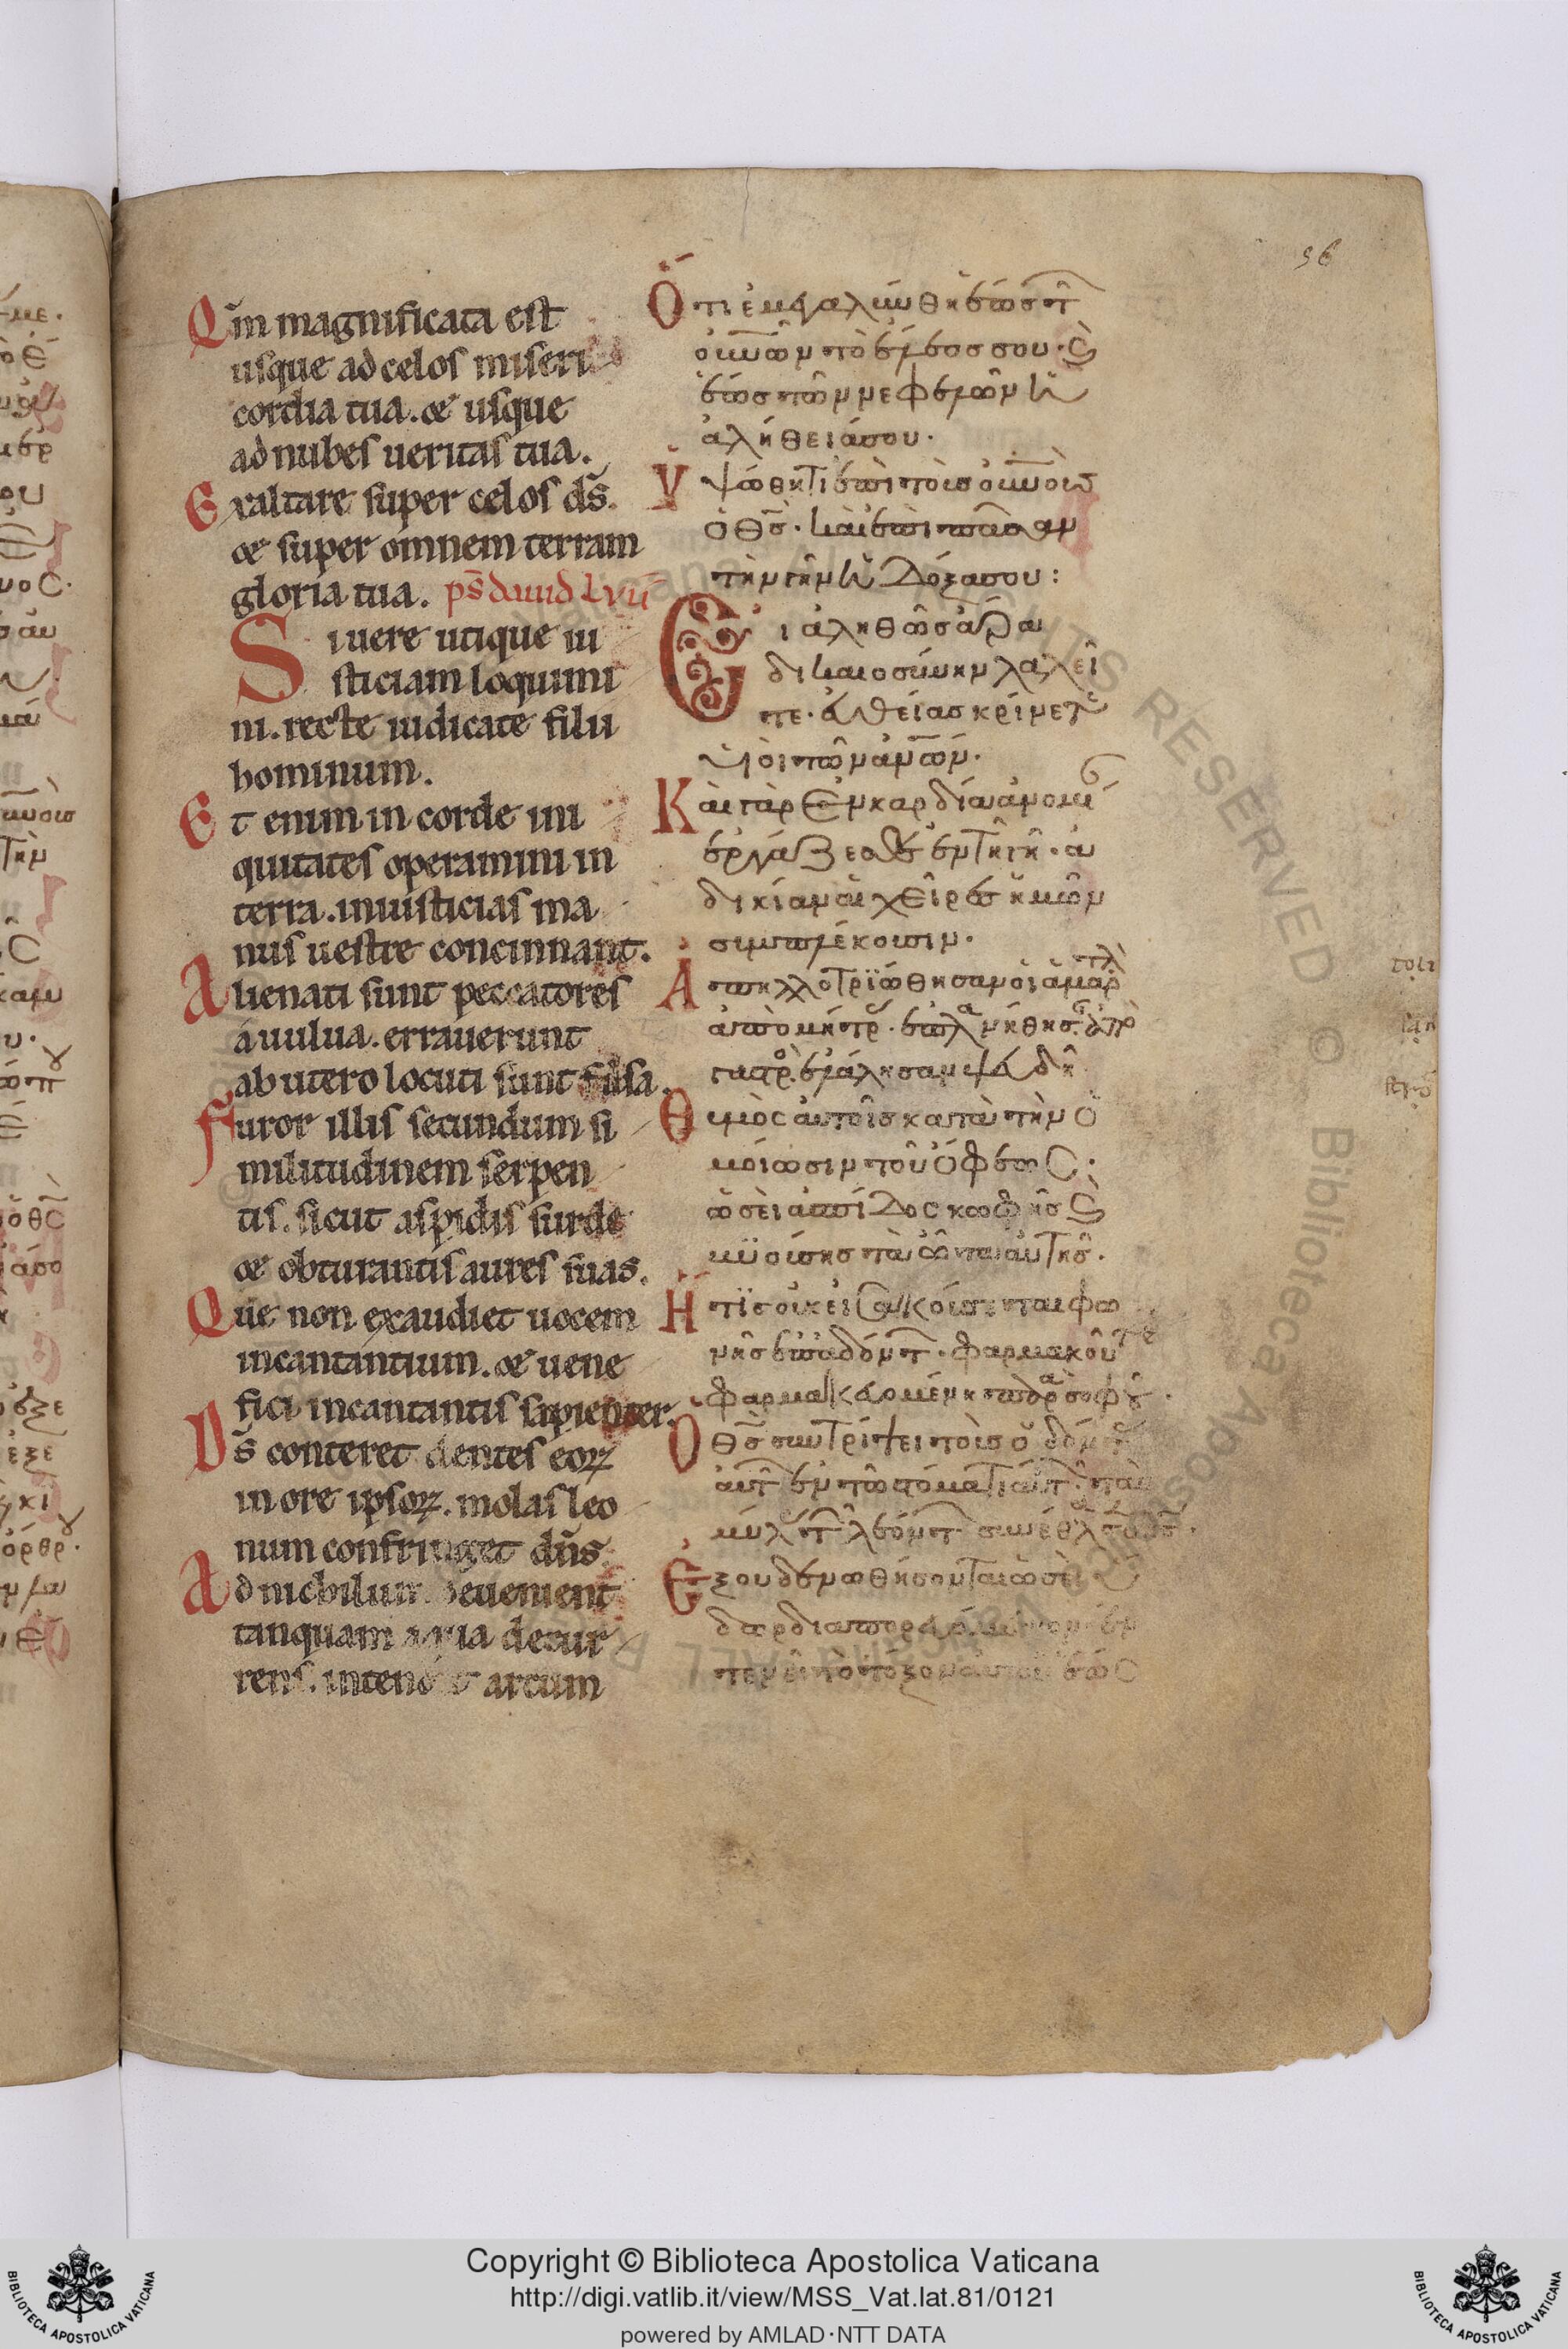 56
Qm̄ magnificata est
usque ad celos miseri
cordia tua. & usque
ad nubes ueritas tua.
Exaltare super celos ds̄.
& super omnem terram
gloria tua. ps̄ dauid lvii
Si uere utique iu
sticiam loquimi
ni. recte iudicate filii
hominum.
Et enim in corde ini
quitates operamini in
terra. iniusticias ma
nus uestre concinnant.
Alienati sunt peccatores
a uulua. errauerunt
ab utero locuti sunt falsa.
Furor illis secundum si
militudinem serpen
tis. sicut aspidis surde
& obturantis aures suas.
Que non exaudiet uocem
incantantium. & uene
fici incantantis sapienter.
Ds̄ conteret dentes eoꝝ
in ore ipsoꝝ. molas leo
num confringet dn̄s.
Ad nichilum deuenient
tanquam aqua decur
rens. intendit arcum
Ὅτι ἐμεγαλύνθη ἕως τ
οὐν͞ων τὸ ἔλεός σου. ϗ
ἕως τῶν νεφελῶν ἡ
ἀλήθειά σου.
Ὑψώθητι ἐπὶ τοὺς οὐν͞οὺς
ὁ θ͞ς. καὶ ἐπὶ πᾶσαν
τὴν γῆν ἡ δόξα σου:
Εἰ ἀληθῶς ἄρα
δικαιοσύνην λαλεῖ
τε. εὐθείας κρίνετε
υἱοὶ τῶν ἀν͞ων.
Καὶ γὰρ ἐν καρδία ἀνομί
ἐργάζεσθε ἐν τῆ γῆ. ἀ
δικίαν αἱ χεῖρες ἡμῶν
συμπλέκουσιν.
Ἀπηλλοτριώθησαν οἱ ἁμαρτλ
ἀπὸ μήτρ. ἐπλανήθησ ἀπὸ
γαστρ. ἐλάλησαν ψευδῆ
Θυμὸς αὐτοῖς κατὰ τὴν ὁ
μοίωσιν τοῦ ὄφεως.
ὡσεὶ ἀσπίδος κωφῆς ϗ
βυούσης τὰ ὦτα αὐτῆς.
Ἥτις οὐκ εἰσακούσεται φω
νῆς ἐπαδόντ. φαρμακοῦτε
φαρμακευομένη παρὰ σοφοῦ.
Ὁ θ͞ς συντρίψει τοὺς ὀδόντ
αὐτ ἐν τῶ στόματι αὐτ. τὰς
μύλ τ λεόντ συνέθλασεν
Ἐξουδενωθήσονται ὡσεὶ
ὕδωρ διαπορευόμενον. ἐν
τενεῖ τὸ τόξον αὐτοῦ ἕως
Copyright © Biblioteca Apostolica Vaticana
http://digi.vatlib.it/view/MSS_Vat.lat.81/0121
powered by AMLAD·NTT DATA
BIBLIOTECA APOSTOLICA VATICANA
BIBLIOTECA APOSTOLICA VATICANA